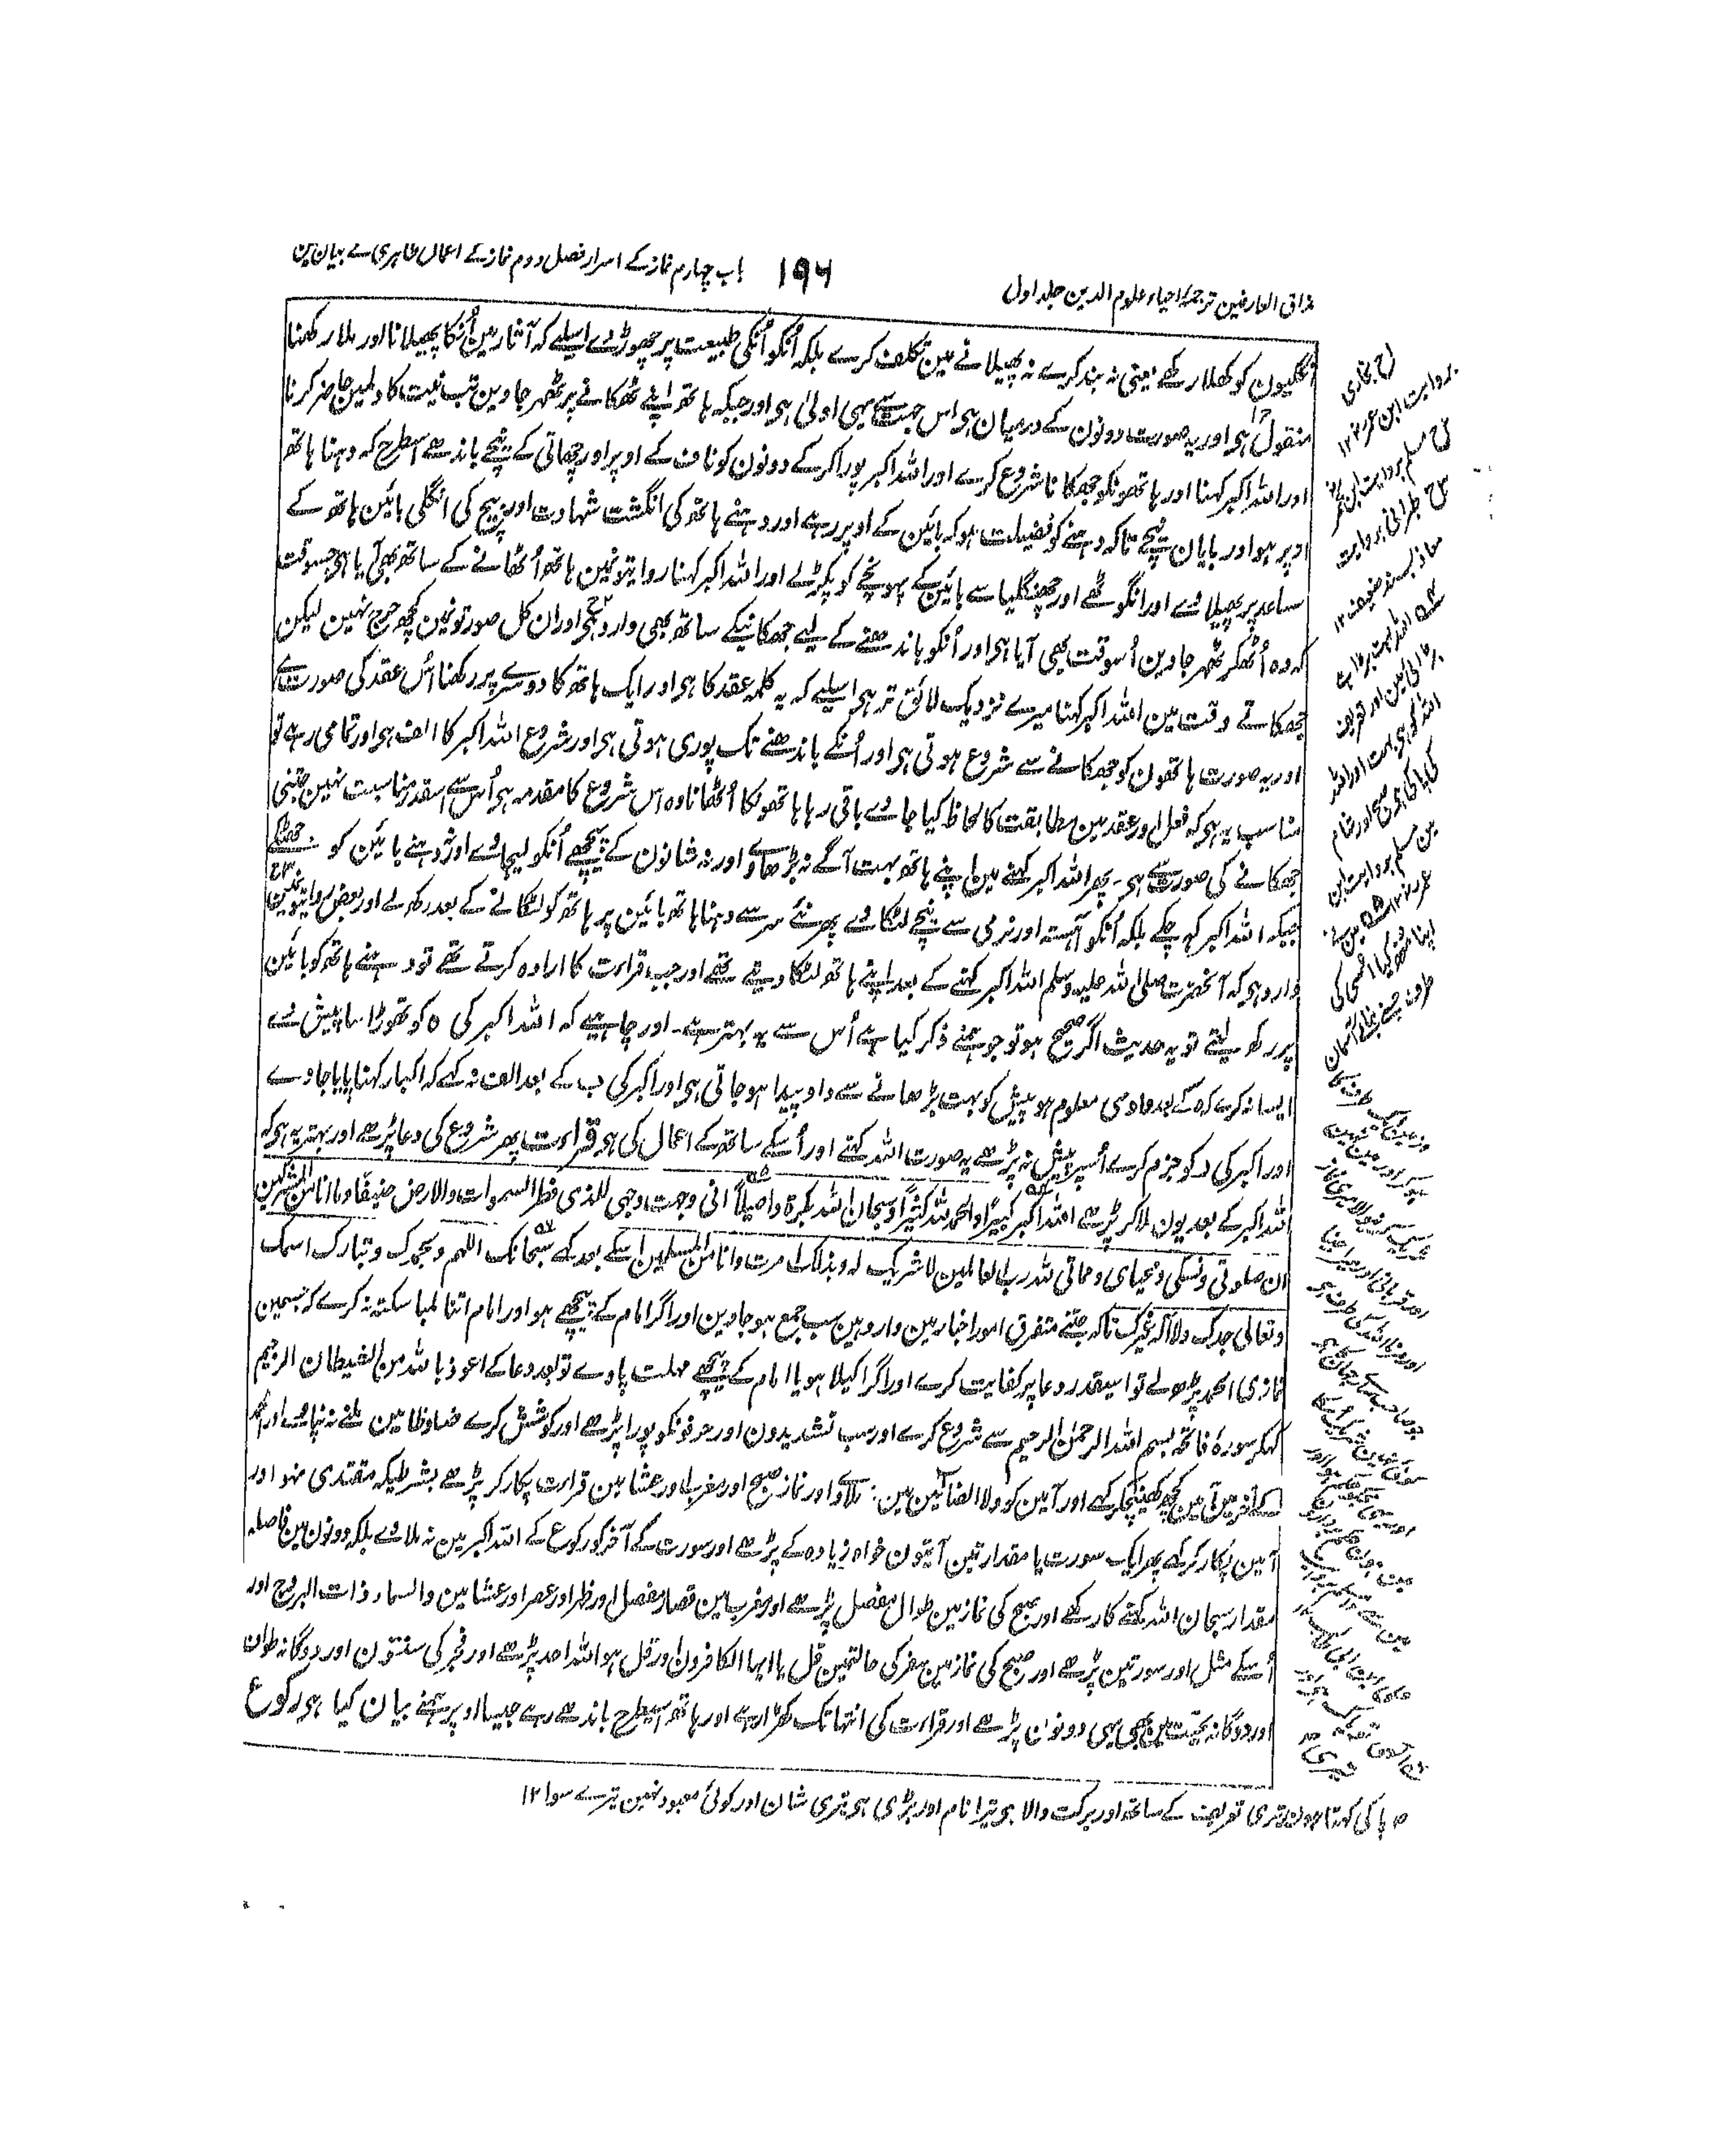 مذاق العارفین ترجمۂ احیاء علوم الدین جلد اول
۱۹۶
باب چہارم نماز کے اسرار فصل دوم نماز کے اعمال ظاہری کے بیان مین
انگلیون کو کھلا رکھے یعنی نہ بند کرے نہ پھیلانے مین تکلف کرے بلکہ اُنکو اُنکی طبیعت پر چھوڑ دے اسلیے کہ آثار مین اُنکا پھیلانا اور ملا رکھنا
منقول ہی اور یہ صورت دونون کے درمیان ہی اس جہت سے یہی اولیٰ ہی اور جبکہ ہاتھ اپنے ٹھکانے پر ٹھہر جاوین تب نیت کا دلمین حاضر کرنا
اور اللہ اکبر کہنا اور ہاتھونکو جھکانا شروع کرے اور اللہ اکبر پورا کر کے دونون کو ناف کے اوپر اور چھاتی کے نیچے باندھے اسطرح کہ دہنا ہاتھ
اوپر ہو اور بایان نیچے تاکہ دہنے کو فضیلت ہو کہ بائین کے اوپر رہے اور دہنے ہاتھ کی انگشت شہادت اور بیچ کی انگلی بائین ہاتھ کے
ساعد پر پھیلا دے اور انگوٹھے اور چھنگلیا سے بائین کے پہونچے کو پکڑ لے اور اللہ اکبر کہنا روایتونمین ہاتھ اُٹھانے کے ساتھ بھی آیا ہی جسوقت
کہ وہ اُٹھکر ٹھہر جاوین اُسوقت بھی آیا ہی اور اُنکو باندھنے کے لیے جھکانیکے ساتھ بھی وارد ہی اور ان کل صورتونمین کچھ حرج نہین لیکن
جھکاتے وقت مین اللہ اکبر کہنا میرے نزدیک لائق تر ہی اسلیے کہ یہ کلمہ عقد کا ہی اور ایک ہاتھ کا دوسرے پر رکھنا اُس عقد کی صورت ہے
اور یہ صورت ہاتھون کو جھکانے سے شروع ہوتی ہی اور اُنکے باندھنے تک پوری ہوتی ہی اور شروع اللہ اکبر کا الف ہی اور تمامی رہے تو
مناسب یہ ہی کہ فعل اور عقد مین مطابقت کا لحاظ کیا جاوے باقی رہا ہاتھونکا اُٹھانا وہ اس شروع کا مقدمہ ہی اُس سے اسقدر مناسبت نہین جتنی
جھکانے کی صورت سے ہی۔ پھر اللہ اکبر کہنے مین اپنے ہاتھ بہت آگے نہ بڑھاوے اور نہ شانون کے پیچھے اُنکو لیجاوے اور نہ دہنے بائین کو جھٹکے
جبکہ اللہ اکبر کہہ چکے بلکہ اُنکو آہستہ اور نرمی سے نیچے لٹکاوے پھر نئے سر سے دہنا ہاتھ بائین پر ہاتھ کو لٹکانے کے بعد رکھ لے اور بعض روایتونمین
وارد ہی کہ آنحضرت صلی اللہ علیہ وسلم اللہ اکبر کہنے کے بعد اپنے ہاتھ لٹکا دیتے تھے اور جب قراءت کا ارادہ کرتے تھے تو دہنے ہاتھ کو بائین
پر رکھ لیتے تو یہ حدیث اگر صحیح ہو تو جو ہمنے ذکر کیا ہے اُس سے یہ بہتر ہے۔ اور چاہیے کہ اللہ اکبر کی ہ کو تھوڑا سا پیش دے
ایسا نہ کرے کہ ہ کے بعد واو سی معلوم ہو پیش کو بہت بڑھانے سے واو پیدا ہو جاتی ہی اور اکبر کی ب کے بعد الف نہ کہے کہ اکبار کہنا پایا جاوے
اور اکبر کی ر کو جزم کرے اُسپر پیش نہ پڑھے یہ صورت اللہ کہنے اور اُسکے ساتھ کے اعمال کی ہی قراءت پھر شروع کی دعا پڑھے اور بہتر یہ ہی کہ
اللہ اکبر کے بعد یون ملا کر پڑھے اللہ اکبر کبیرًا والحمد للہ کثیرًا وسبحان اللہ بکرۃ واصیلًا انی وجہت وجہی للذی فطر السموات والارض حنیفًا وما انا من المشرکین
ان صلوتی ونسکی ومحیای ومماتی للہ رب العالمین لا شریک لہ وبذلک امرت وانا من المسلمین اسکے بعد کہے سبحانک اللہم وبحمدک وتبارک اسمک
وتعالی جدک ولا الہ غیرک تاکہ جتنے متفرق امور اخبار مین وارد ہین سب جمع ہو جاوین اور اگر امام کے پیچھے ہو اور امام اتنا لمبا سکتہ نہ کرے کہ جسمین
نمازی الحمد پڑھ لے تو اسیقدر دعا پر کفایت کرے اور اگر اکیلا ہو یا امام کے پیچھے مہلت پاوے تو بعد دعا کے اعوذ باللہ من الشیطان الرجیم
کہکر سورۂ فاتحہ بسم اللہ الرحمٰن الرحیم سے شروع کرے اور سب تشدیدون اور حرفونکو پورا پڑھے اور کوشش کرے ض اور ظا مین ملنے نہ پاوے اور الحمد
کے آخر مین آمین کچھ کھینچکر کہے اور آمین کو ولا الضالین مین نہ ملاوے اور نماز صبح اور مغرب اور عشا مین قراءت پکار کر پڑھے بشرطیکہ مقتدی نہو اور
آمین پکار کر کہے پھر ایک سورت یا مقدار تین آیتون خواہ زیادہ کے پڑھے اور سورت کے آخر کو رکوع کے اللہ اکبر مین نہ ملاوے بلکہ دونون مین فاصلہ
مقدار سبحان اللہ کہنے کا رکھے اور صبح کی نماز مین طوال مفصل پڑھے اور مغرب مین قصار مفصل اور ظہر اور عصر اور عشا مین والسماء ذات البروج اور
اُسکے مثل اور سورتین پڑھے اور صبح کی نماز مین سفر کی حالتمین قل یا ایہا الکافرون اور قل ہو اللہ احد پڑھے اور فجر کی سنتون اور دوگانہ طواف
اور دوگانہ تحیت مین بھی یہی دونون پڑھے اور قراءت کی انتہا تک کھڑا رہے اور ہاتھ اسیطرح باندھے رہے جیسا اوپر ہمنے بیان کیا ہی رکوع
ح بخاری
بروایت ابن عمر ۱۲
ح مسلم بروایت ابن عمر
ح طبرانی بروایت
معاذ بسند ضعیف ۱۲
اللہ بہت بڑا ہے
اللہ کو ہی بہت اور اللہ
کی پاکی ہی صبح اور شام
مین مسلم بروایت ابن
عمر ۱۲
اپنا منھ کیا اُسی کی
طرف جسنے بنائے آسمان
پاکی کہتا ہون تیری تعریف کے ساتھ اور برکت والا ہی تیرا نام اور بڑی ہی تیری شان اور کوئی معبود نہین تیرے سوا ۱۲